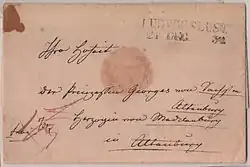 LUDWIGSLUST
21 DEC
Ihro Hoheit
Der Prinzessin Georges von Sachsen
Altenburg
Herzogin von Mecklenburg
in Altenburg